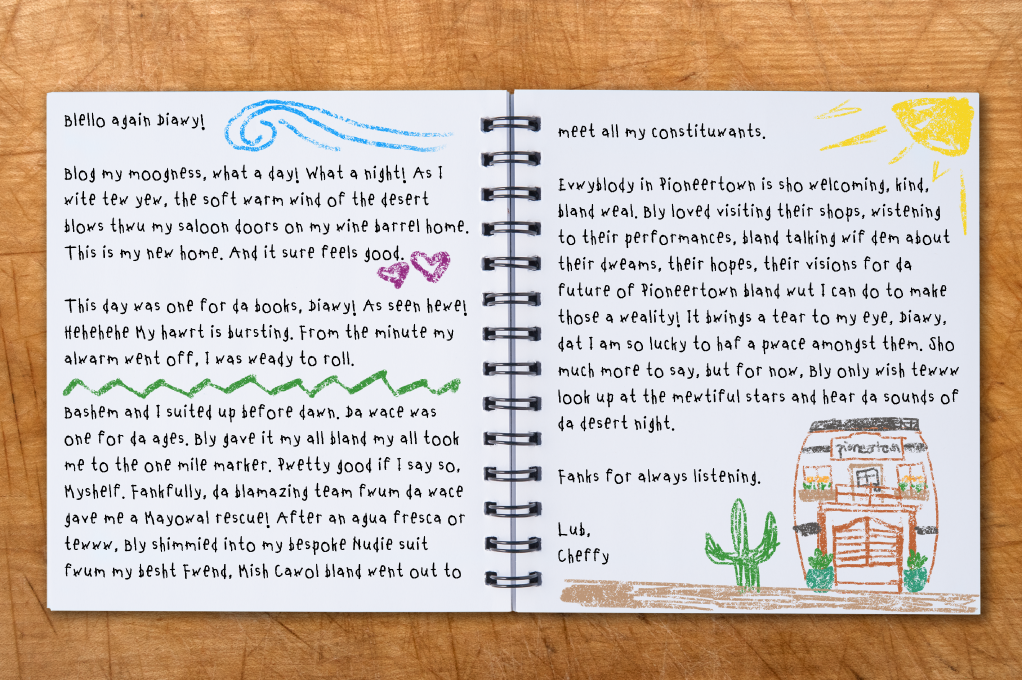 Blello again Diawy!
Blog my moogness, what a day! What a night! As I
wite tew yew, the soft warm wind of the desert
blows thwu my saloon doors on my wine barrel home.
This is my new home. And it sure feels good.
This day was one for da books, Diawy! As seen hewe!
Hehehehe My hawrt is bursting. From the minute my
alwarm went off, I was weady to roll.
Bashem and I suited up before dawn. Da wace was
one for da ages. Bly gave it my all bland my all took
me to the one mile marker. Pwetty good if I say so,
Myshelf. Fankfully, da blamazing team fwum da wace
gave me a Mayowal rescue! After an agua fresca or
tewww, Bly shimmied into my bespoke Nudie suit
fwum my besht Fwend, Mish Cawol bland went out to
meet all my constituwants.
Evwyblody in Pioneertown is sho welcoming, kind,
bland weal. Bly loved visiting their shops, wistening
to their performances, bland talking wif dem about
their dweams, their hopes, their visions for da
future of Pioneertown bland wut I can do to make
those a weality! It bwings a tear to my eye, Diawy,
dat I am so lucky to haf a pwace amongst them. Sho
much more to say, but for now, Bly only wish tewww
look up at the mewtiful stars and hear da sounds of
da desert night.
Pioneertown
Fanks for always listening.
Lub,
Cheffy